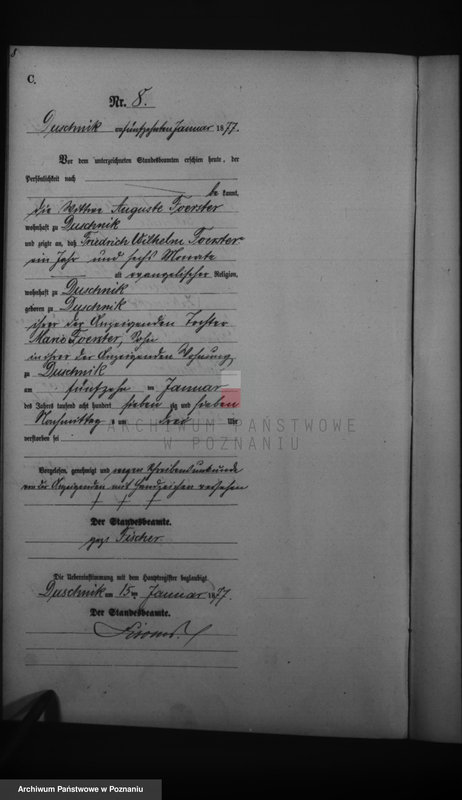 8
C.
Nr. 8.
Duschnik am fünfzehnten Januar 1877.
Vor dem unterzeichneten Standesbeamten erschien heute, der
Persönlichkeit nach
be kannt,
die Wittwe Auguste Foerster
wohnhaft zu Duschnik
und zeigte an, daß Friedrich Wilhelm Foerster
ein Jahr und sechs Monate
alt evangelischer Religion,
wohnhaft zu Duschnik
geboren zu Duschnik
ihrer der Anzeigenden Tochter
Marie Foerster, Sohn
in ihrer der Anzeigenden Wohnung
zu Duschnik
am fünfzehn ten Januar
des Jahres tausend acht hundert sieben zig und sieben
Nachmittag s um drei Uhr
verstorben sei
ARCHIWUM PAŃSTWOWE
W POZNANIU
Vorgelesen, genehmigt und wegen Schreibensunkunde
von der Anzeigenden mit Handzeichen versehen
+ + +
Der Standesbeamte.
gez. Fischer
Die Uebereinstimmung mit dem Hauptregister beglaubigt
Duschnik am 15ten Januar 1877.
Der Standesbeamte.
Archiwum Państwowe w Poznaniu